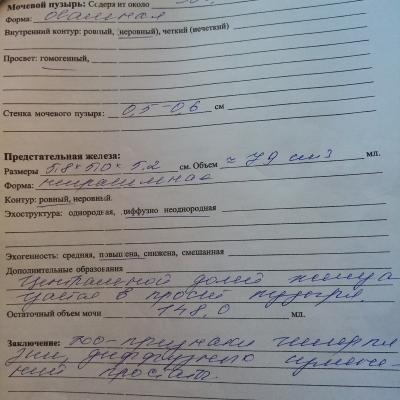 Мочевой пузырь: Содержит около
Форма: овальная
Внутренний контур: ровный, (неровный), четкий (нечеткий)
Просвет: гомогенный,
Стенка мочевого пузыря: 0,5-0,6 см
Предстательная железа:
Размеры 5.8 x 5.0 x 5.2 см. Объем ≈ 79 см3 мл.
Форма: неправильная
Контур: ровный, неровный.
Эхоструктура: однородная, диффузно неоднородная
Эхогенность: средняя, повышена, снижена, смешанная
Дополнительные образования
Центральной долей
в просвет пузыря
Остаточный объем мочи 148,0 мл.
Заключение: эхо-признаки гиперпла
зии, диффузных измене
ний простаты.